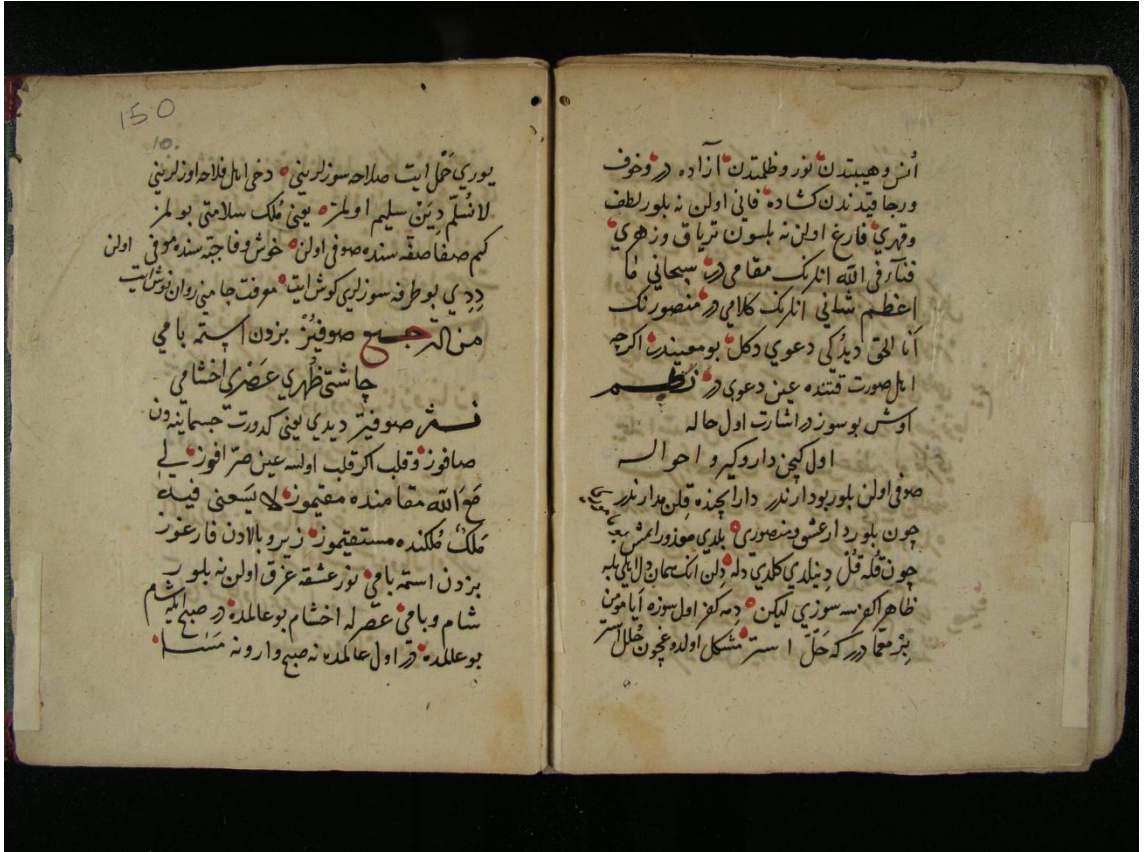 انس و هیبتدن نور و ظلمتدن آزاده در و خوف
و رجا قیدندن کشاده فانی اولن نه بلور لطف
و قهری فارغ اولن نه بلسون تریاق و زهری
فنآء فی الله انلرنک مقامی در سبحانی ما
اعظم شانی انلرنک کلامی در منصورنک
انا الحق دیدکی دعوی دکل بو معنیدر اکرچه
اهل صورت قتنده عین دعوی در نظم
اوش بو سوزدر اشارت اول حاله
اول کچن دار و کیر و احواله
صوفی اولن بلور بو دار ندر دار ایچنده قلن مدار ندر
چون بلور دار عشق منصوری بلدی معذور ایمش
چون قله قل دینلدی کلدی دله دلن انک همان دل ایلی بله
ظاهرا کفرسه سوزی لیکن دمه کفر اول سوزه ایا مؤمن
بر معمادر که حل استر مشکل اولدوغیچون حلل استر
150
10.
یوری حمل ایت صلاحه سوزلرینی دخی اهل فلاحه اوزلرینی
لا نسلم دین سلیم اولمز یعنی ملک سلامتی بولمز
کم صفا صفه سنده صوفی اولن خوش وفا جبه سنده موفی اولن
ددی بو طرفه سوزلری کوش ایت معرفت جامنی روان نوش ایت
من الترجیع صوفیز بزدن استمه بامی
چاشتی ظهری عصری اخشامی
نثر صوفیز دیدی یعنی کدورت جسمانیه دن
صافوز و قلب اکر قلب اولسه عین صرافوز لی
مع الله مقامنده مقیموز لا یسعنی فیه
ملک ملکنده مستقیموز زیر و بالادن فارغوز
بزدن استمه بامی نور عشقه غرق اولن نه بلور
شام و بامی عصرله اخشام بو عالمده در صبح ایله شام
بو عالمده در اول عالمده نه صبح وار و نه مسا